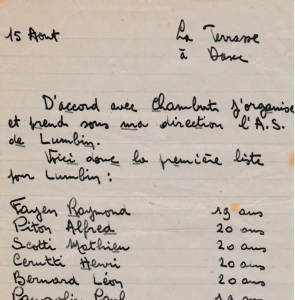 15 Aout
La Terrasse
à Dave
D'accord avec Chambert j'organise
et prend sous ma direction l'A.S.
de Lumbin.
Voici donc la première liste
pour Lumbin :
Fayen Raymond 19 ans
Piton Alfred 20 ans
Scotti Mathieu 20 ans
Cerutti Henri 20 ans
Bernard Léon 20 ans
Paul